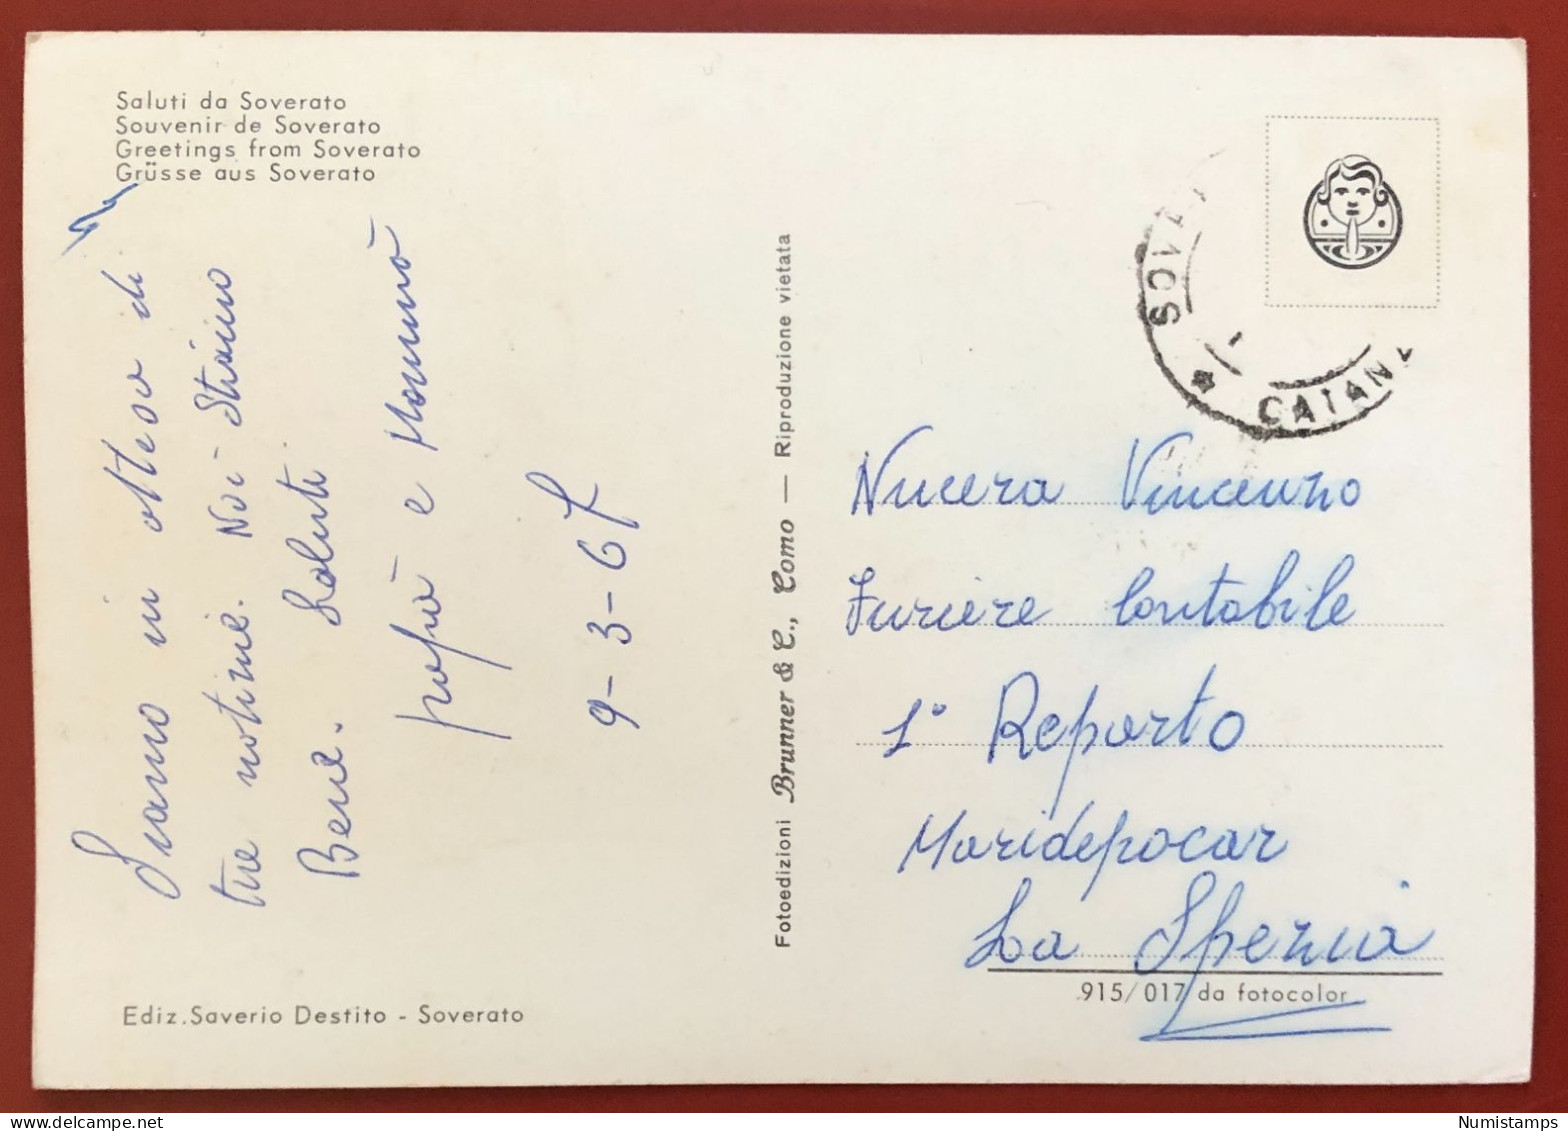 Saluti da Soverato
Souvenir de Soverato
Greetings from Soverato
Grüsse aus Soverato
Siamo in attesa di
tue notizie. Noi stiamo
Bene. Saluti
papà e Mammà
9-3-67
Ediz. Saverio Destito - Soverato
Fotoedizioni Brunner & C., Como — Riproduzione vietata
SOVE
CATANZ
Nucera Vincenzo
Furiere Contabile
1° Reparto
Maridepocar
La Spezia
915/017 da fotocolor
www.delcampe.net
Numistamps